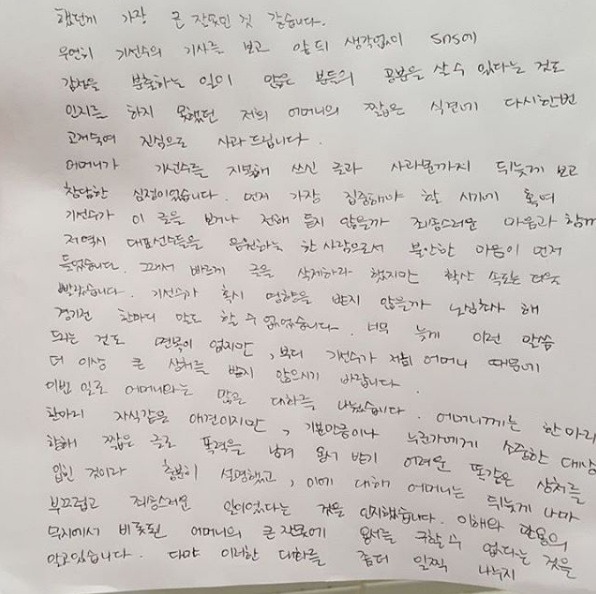 했던게 가장 큰 잘못인 것 같습니다.
우연히 기선수의 기사를 보고 앞뒤 생각없이 SNS에
감정을 분출하는 일이 많은 분들의 공분을 살 수 있다는 것도
인지를 하지 못했던 저희 어머니의 짧은 식견에 다시한번
고개숙여 진심으로 사과드립니다.
어머니가 기선수를 지목해 쓰신 글과 사과문까지 뒤늦게 보고
참담한 심정이었습니다. 먼저 가장 집중해야 할 시기에 혹여
기선수가 이 글을 보거나 전해 듣지 않을까 죄송스러운 마음과 함께
저역시 대표선수들을 응원하는 한 사람으로서 불안한 마음이 먼저
들었습니다. 그래서 빠르게 글을 삭제하라 했지만 확산 속도는 더욱
빨랐습니다. 기선수가 혹시 영향을 받지 않을까 노심초사 해
경기전 한마디 말도 할 수 없었습니다. 너무 늦게 이런 말씀
드리는 것도 면목이 없지만, 부디 기선수가 저희 어머니 때문에
더 이상 큰 상처를 받지 않으시기 바랍니다.
이번 일로 어머니와는 많은 대화를 나눴습니다. 어머니께는 한마리
한마리 자식같은 애견이지만, 기분만큼이나 누군가에게 소중한 대상을
향해 짧은 글로 폭력을 남겨 용서 받기 어려운 똑같은 상처를
입힌 것이라 충분히 설명했고, 이에 대해 어머니는 뒤늦게 나마
부끄럽고 죄송스러운 일이었다는 것을 인지했습니다. 이해와 관용의
무지에서 비롯된 어머니의 큰 잘못에 용서를 구할 수 없다는 것을
알고있습니다. 다만 이러한 대화를 좀더 일찍 나누지